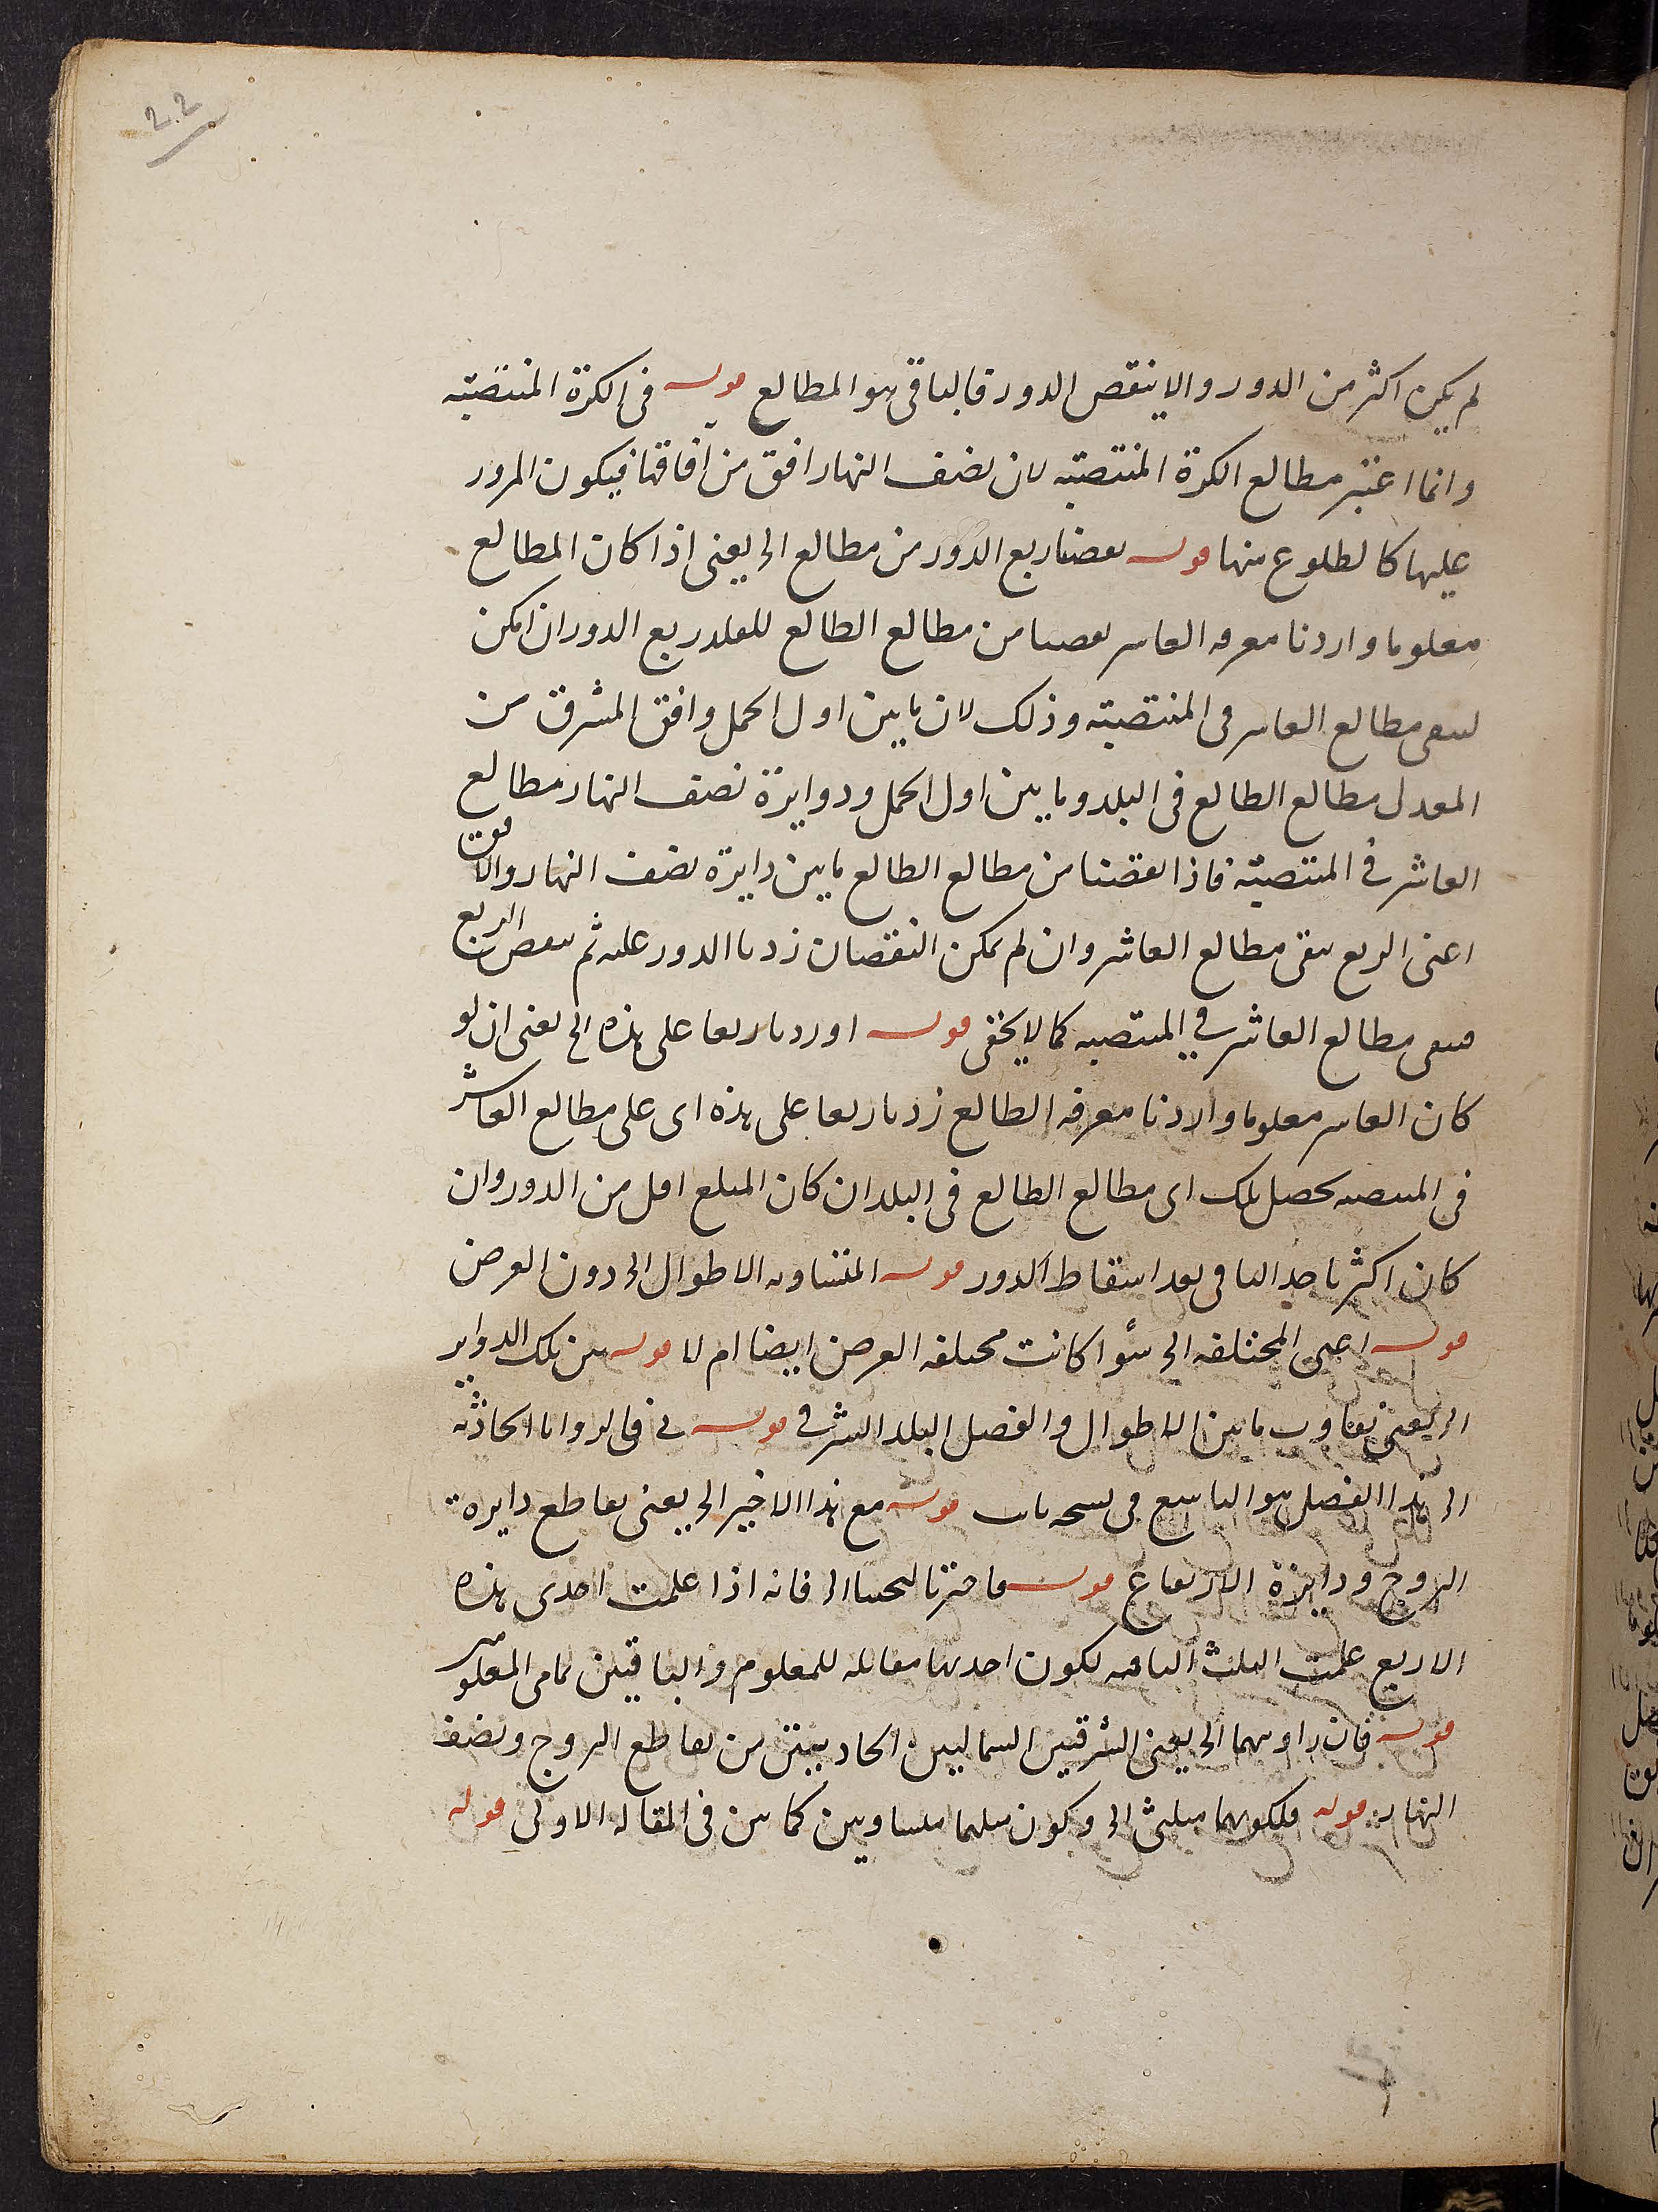 22
لم يكن اكثر من الدور والا ينقص الدور فالباقى هو المطالع قوله فى الكرة المنتصبة
وانما اعتبر مطالع الكرة المنتصبه لان نصف النهار افق من آفاقها فيكون المرور
عليها كالطلوع منها قوله نقصنا ربع الدور من مطالع الخ يعنى اذا كان المطالع
معلوما واردنا معرفه العاشر نقصنا من مطالع الطالع للبلد ربع الدور ان امكن
ليبقى مطالع العاشر فى المنتصبته وذلك لان ما بين اول الحمل وافق المشرق من
المعدل مطالع الطالع فى البلد وما بين اول الحمل ودوايرة نصف النهار مطالع
العاشر فى المنتصبة فاذا نقصنا من مطالع الطالع ما بين دايرة نصف النهار والافق
اعنى الربع يبقى مطالع العاشر وان لم يمكن النقصان زدنا الدور عليه ثم ينقص الربع
فيبقى مطالع العاشر فى المنتصبه كما لا يخفى قوله او زدنا ربعا على هذه الخ يعنى ان لو
كان العاشر معلوما واردنا معرفه الطالع زدنا ربعا على هذه اى على مطالع العاشر
فى المنتصبه يحصل تلك اى مطالع الطالع فى البلد ان كان المبلغ اقل من الدور وان
كان اكثر ناخذ الباقى بعد اسقاط الدور قوله المتساويه الاطوال الخ دون العرض
قوله اعنى المختلفه الخ سوا كانت مختلفه العرض ايضا ام لا قوله بين تلك الدواير
الخ يعنى تفاوت ما بين الاطوال والفصل البلد الشرقى قوله فى الزوايا الحادثه
الخ هذا الفصل هو التاسع فى نسخه قوله مع هذا الاخير الخ يعنى تقاطع دايرة
البروج ودايرة الارتفاع قوله فاخترنا الخ فانه اذا علمت احدى هذه
الاربع علمت الثلث الباقيه لكون احديها مقابله للمعلوم والباقيين تمامى المعلوم
قوله فان زاويتهما الخ يعنى الشرقيتين الشماليتين الحادبيتين من تقاطع البروج ونصف
النهار قوله فلكونهما الخ وكون ميلهما متساويين كما بين فى المقاله الاولى قوله